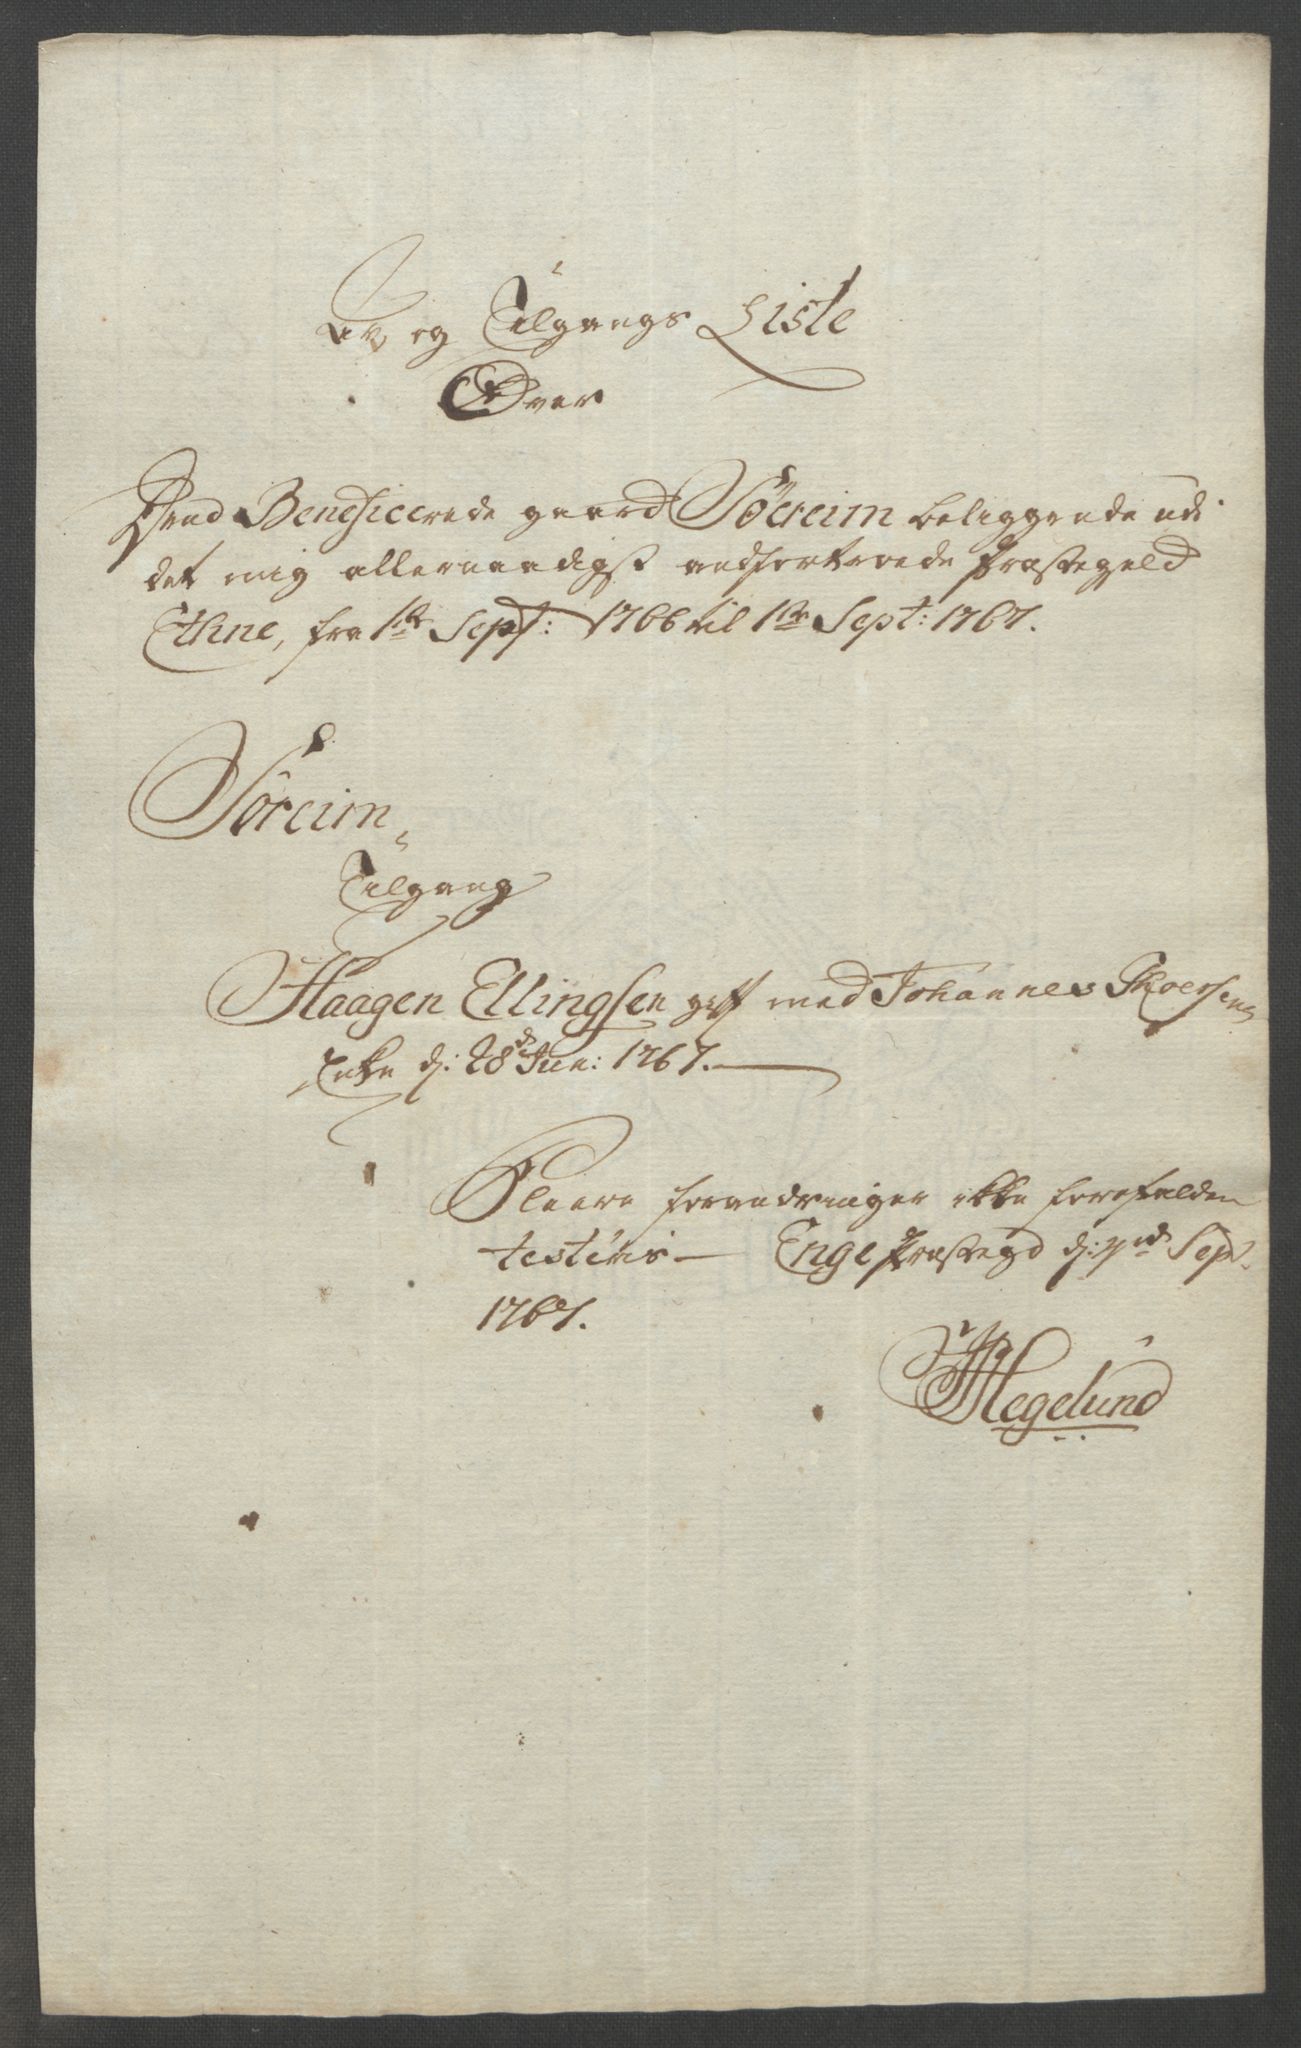 Av og Tilgangs Liste
Over
Dend Beneficerede gaard Söereim beliggende udi
det mig allernaadigst andfortroede Præstegeld
Ethne, fra 1te Sept: 1766 til 1te Sept: 1767.
Söreim,
Tilgang
Haagen Ellingsen gift med Johannes Thoersens
Enke d: 28de Jun: 1767.
Fleere forandringer ikke forefalden
testeris Enge Præstegd d: Sept.
1767.
Hegelund